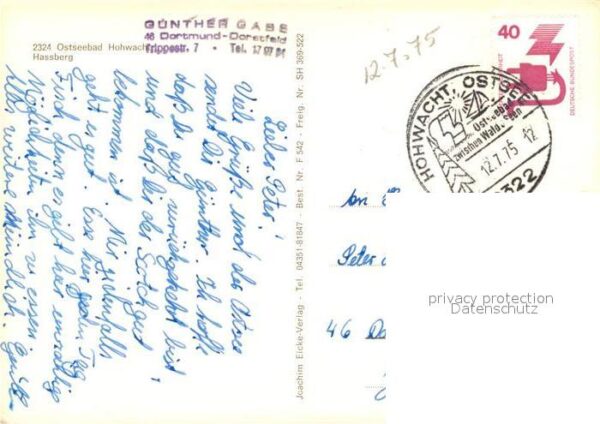 2324 Ostseebad Hohwach
Hassberg
GÜNTHER GABE
46 Dortmund-Dorstfeld
Trippestr. 7 • Tel. 17 07 04
Lieber Peter!
Viele Grüße von der Ostsee
sendet Dir Günther. Ich hoffe
daß Du gut zurückgekehrt bist
und daß Dir der
bekommen ist. Mir
geht es gut. Esse hier jeden Tag
Fisch denn es gibt hier unzählige
Möglichkeiten ihn zu essen.
Alles weitere Mündlich.
Joachim Eicke-Verlag - Tel. 04351-81847 - Best. Nr. F 542 - Freig. Nr. SH 369-522
12.7.75
40
DEUTSCHE BUNDESPOST
HOHWACHT, OSTSEE
Ostseebad
zwischen Wald, See
12.7.75 12
2322
An
Peter
46 Do
privacy protection
Datenschutz